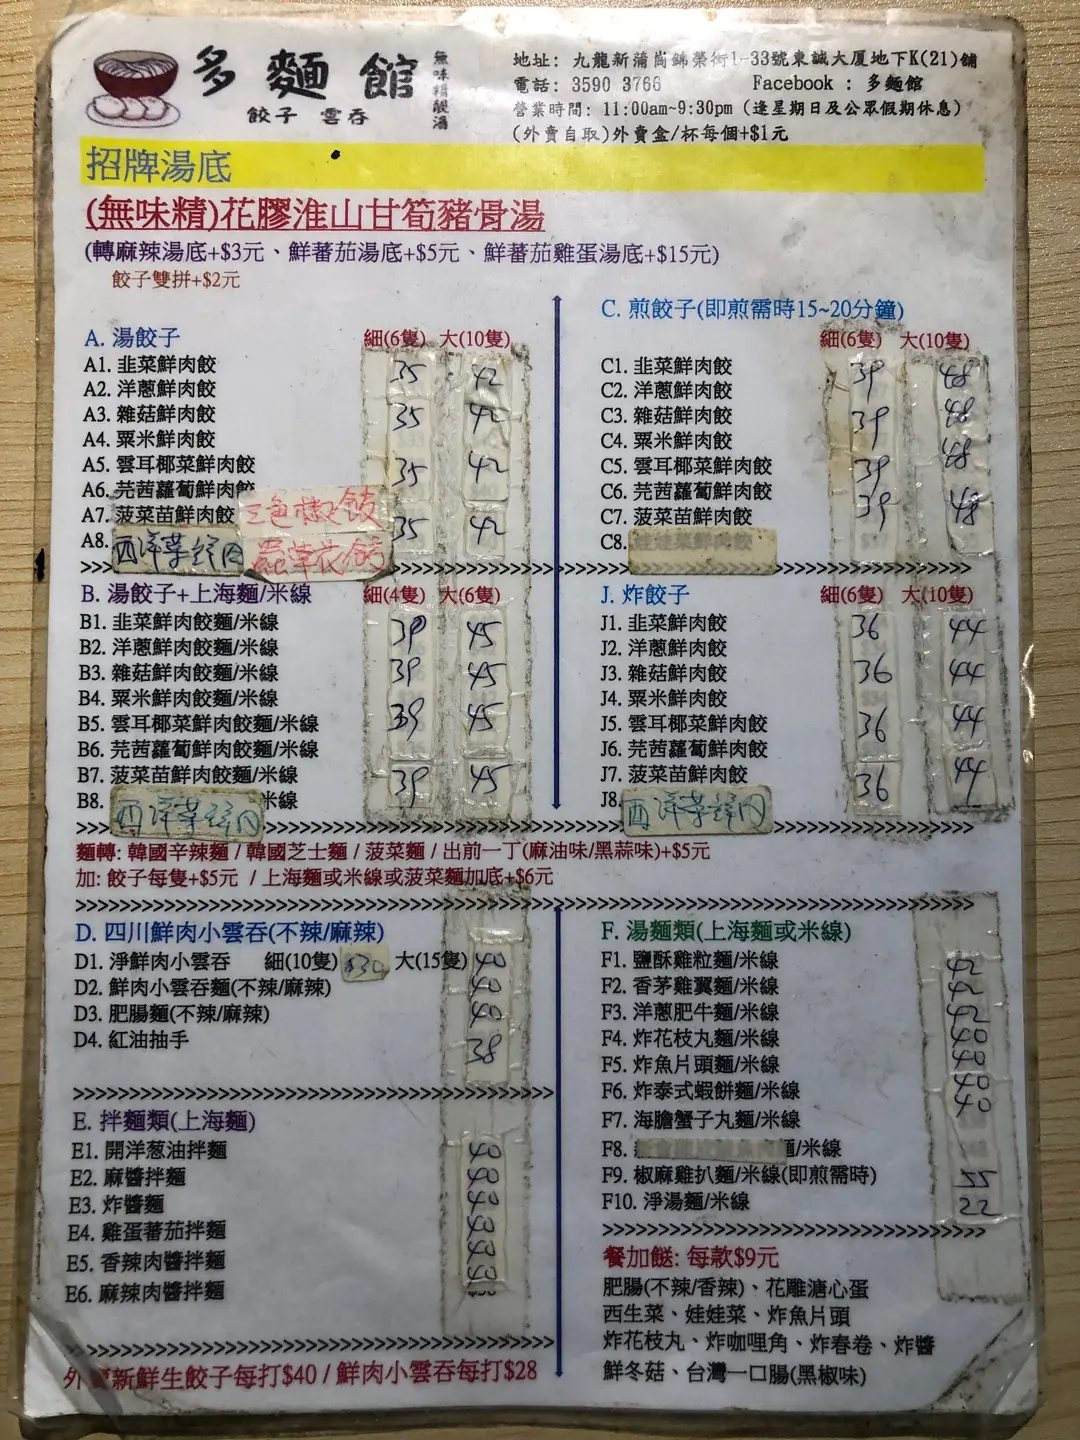 多麵館
餃子 雲吞
無味精靚湯
地址: 九龍新蒲崗錦榮街1-33號東誠大厦地下K(21)舖
電話: 3590 3766 Facebook : 多麵館
營業時間: 11:00am~9:30pm (逢星期日及公眾假期休息)
(外賣自取)外賣盒/杯每個+$1元
招牌湯底
(無味精)花膠淮山甘筍豬骨湯
(轉麻辣湯底+$3元、鮮蕃茄湯底+$5元、鮮蕃茄雞蛋湯底+$15元)
餃子雙拼+$2元
A. 湯餃子 細(6隻) 大(10隻)
A1. 韭菜鮮肉餃 35 42
A2. 洋蔥鮮肉餃
A3. 雜菇鮮肉餃 35 42
A4. 粟米鮮肉餃
A5. 雲耳椰菜鮮肉餃 35 42
A6. 芫茜蘿蔔鮮肉餃
A7. 菠菜苗鮮肉餃 三色椒餃 35 42
A8. 西洋菜鮮肉 蟲草花餃
>>>>>>>>>>>>>>>>>>>>>>>>>>>>
B. 湯餃子+上海麵/米線 細(4隻) 大(6隻)
B1. 韭菜鮮肉餃麵/米線 39 45
B2. 洋蔥鮮肉餃麵/米線
B3. 雜菇鮮肉餃麵/米線 39 45
B4. 粟米鮮肉餃麵/米線
B5. 雲耳椰菜鮮肉餃麵/米線 39 45
B6. 芫茜蘿蔔鮮肉餃麵/米線
B7. 菠菜苗鮮肉餃麵/米線 39 45
B8. 西洋菜鮮肉 米線
C. 煎餃子(即煎需時15~20分鐘)
細(6隻) 大(10隻)
C1. 韭菜鮮肉餃 39 48
C2. 洋蔥鮮肉餃
C3. 雜菇鮮肉餃 39 48
C4. 粟米鮮肉餃
C5. 雲耳椰菜鮮肉餃 39 48
C6. 芫茜蘿蔔鮮肉餃
C7. 菠菜苗鮮肉餃 39 48
C8. 娃娃菜鮮肉餃
>>>>>>>>>>>>>>>>>>>>>>>>>>>>
J. 炸餃子 細(6隻) 大(10隻)
J1. 韭菜鮮肉餃 36 44
J2. 洋蔥鮮肉餃
J3. 雜菇鮮肉餃 36 44
J4. 粟米鮮肉餃
J5. 雲耳椰菜鮮肉餃 36 44
J6. 芫茜蘿蔔鮮肉餃
J7. 菠菜苗鮮肉餃 36 44
J8. 西洋菜鮮肉
>>>>>>>>>>>>>>>>>>>>>>>>>>>>
麵轉: 韓國辛辣麵 / 韓國芝士麵 / 菠菜麵 / 出前一丁(麻油味/黑蒜味)+$5元
加: 餃子每隻+$5元 / 上海麵或米線或菠菜麵加底+$6元
>>>>>>>>>>>>>>>>>>>>>>>>>>>>
D. 四川鮮肉小雲吞(不辣/麻辣)
D1. 淨鮮肉小雲吞 細(10隻) $30 大(15隻) 40
D2. 鮮肉小雲吞麵(不辣/麻辣) 40
D3. 肥腸麵(不辣/麻辣) 40
D4. 紅油抽手 38
>>>>>>>>>>>>>>>>>>>>>>>>>>>>
E. 拌麵類(上海麵)
E1. 開洋葱油拌麵 40
E2. 麻醬拌麵 40
E3. 炸醬麵 40
E4. 雞蛋蕃茄拌麵 43
E5. 香辣肉醬拌麵 43
E6. 麻辣肉醬拌麵 43
>>>>>>>>>>>>>>>>>>>>>>>>>>>>
外賣新鮮生餃子每打$40 / 鮮肉小雲吞每打$28
F. 湯麵類(上海麵或米線)
F1. 鹽酥雞粒麵/米線 42
F2. 香茅雞翼麵/米線 42
F3. 洋蔥肥牛麵/米線 42
F4. 炸花枝丸麵/米線 40
F5. 炸魚片頭麵/米線 40
F6. 炸泰式蝦餅麵/米線 40
F7. 海膽蟹子丸麵/米線 40
F8. 麵/米線
F9. 椒麻雞扒麵/米線(即煎需時) 55
F10. 淨湯麵/米線 22
>>>>>>>>>>>>>>>>>>>>>>>>>>>>
餐加餸: 每款$9元
肥腸(不辣/香辣)、花雕溏心蛋
西生菜、娃娃菜、炸魚片頭
炸花枝丸、炸咖哩角、炸春卷、炸醬
鮮冬菇、台灣一口腸(黑椒味)